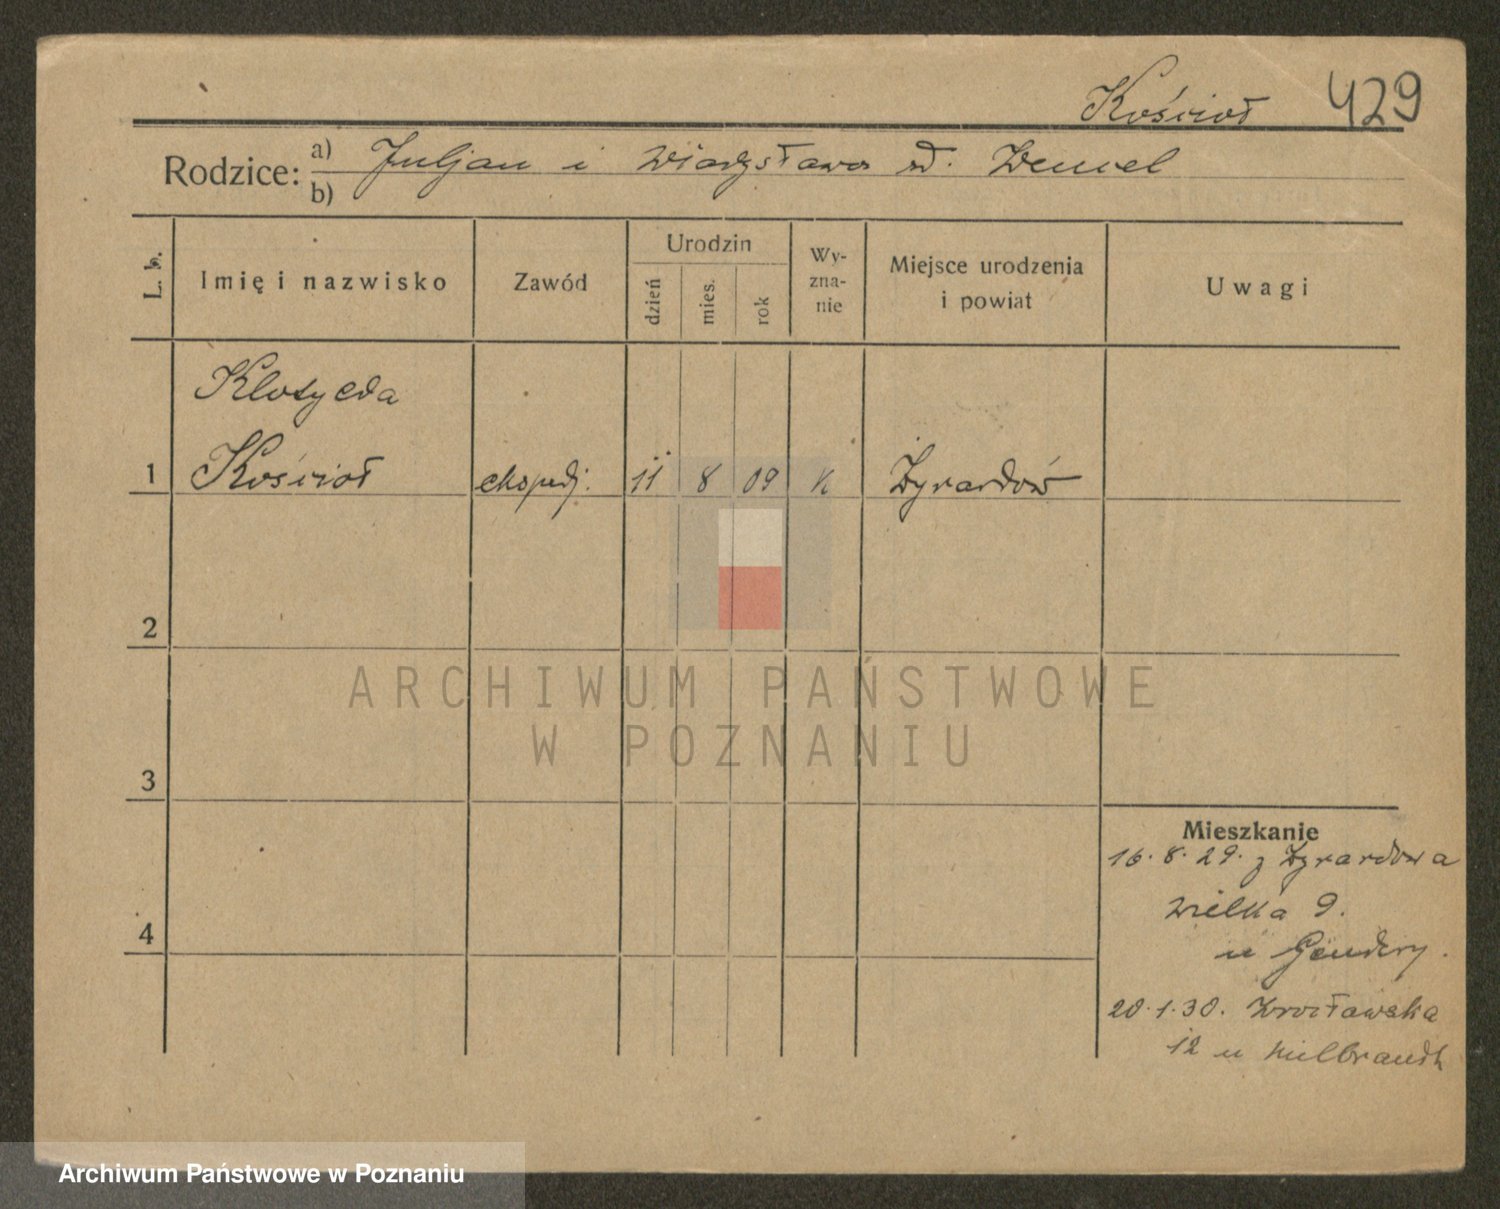 Kościoł 429
Rodzice: a) Juljan i Władysława d. Demel
b)
L. b. Imię i nazwisko Zawód Urodzin dzień mies. rok Wyznanie Miejsce urodzenia i powiat Uwagi
Klotylda
1 Kościoł ekspedj. 11 8 09 k Żyrardów
2
3
4
Mieszkanie
16. 8. 29. z Żyrardowa
Wielka 9.
u Gendery.
20. 1. 30. Wrocławska
12 u Hilbrandt
ARCHIWUM PAŃSTWOWE
W POZNANIU
Archiwum Państwowe w Poznaniu